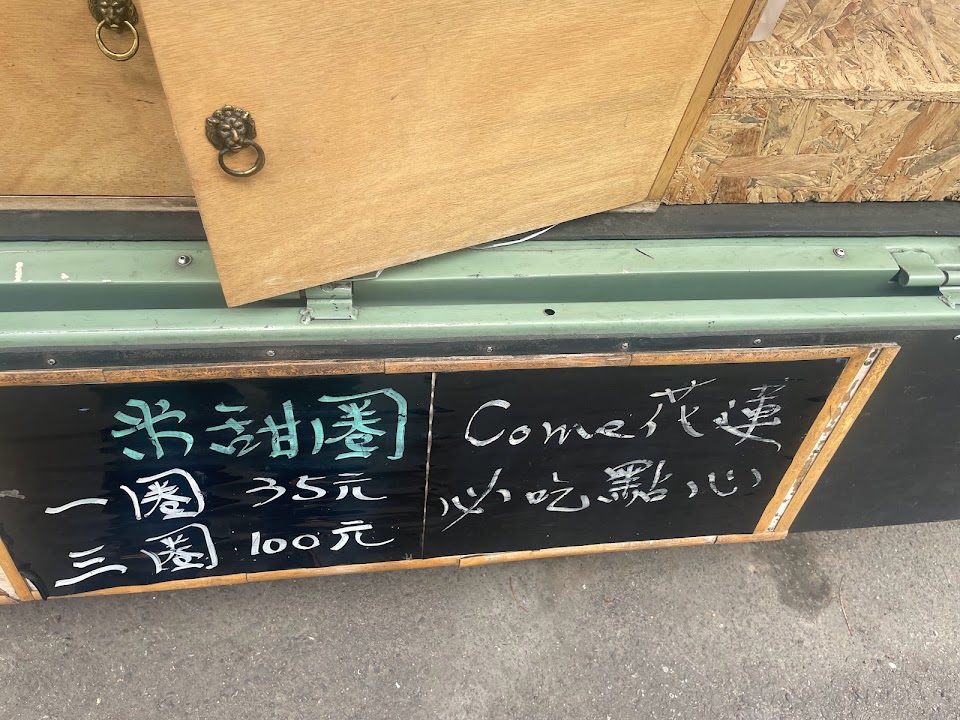 米甜圈
一圈 35元
三圈 100元
Come花蓮
必吃點心